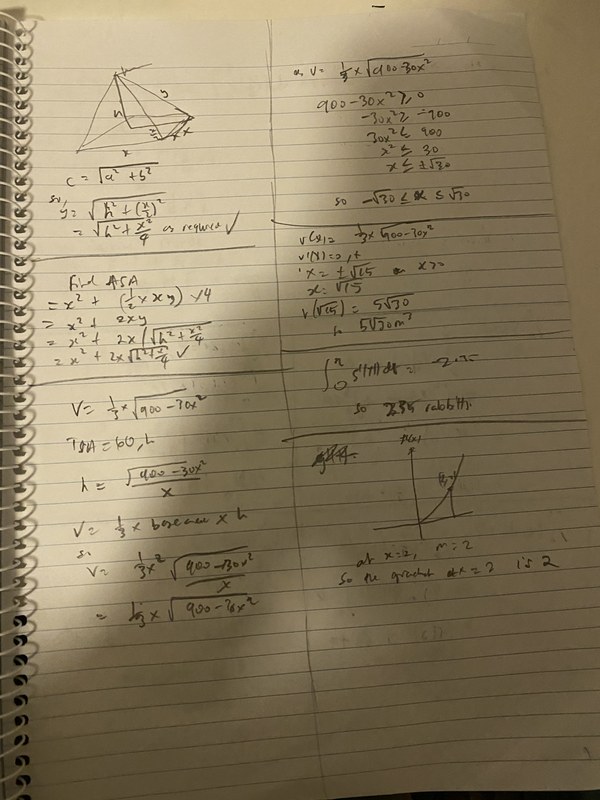 h
y
x
x
c = √a² + b²
so,
y = √h² + (x/2)²
= √h² + x²/4 as required ✓
Find TSA
= x² + (1/2 × xy) × 4
= x² + 2xy
= x² + 2x (√h² + x²/4
= x² + 2x √h² + x²/4 ✓
V = 1/3 x √900 - 30x²
TSA = 60, h
h = √900 - 30x² / x
V = 1/3 × base area × h
so
V = 1/3 x² √900 - 30x² / x
= 1/3 x √900 - 30x²
V = 1/3 x √900 - 30x²
900 - 30x² ≥ 0
-30x² ≥ -900
30x² ≤ 900
x² ≤ 30
x ≤ ±√30
so -√30 ≤ x ≤ √30
V(x) = 1/3 x √900 - 30x²
V'(x) = 0, x
x = ±√15 x >
x = √15
V(√15) = 5√30
5√30 m³
so rabbits
f(x)
at x = 2, m = 2
So the gradient at x = 2 is 2